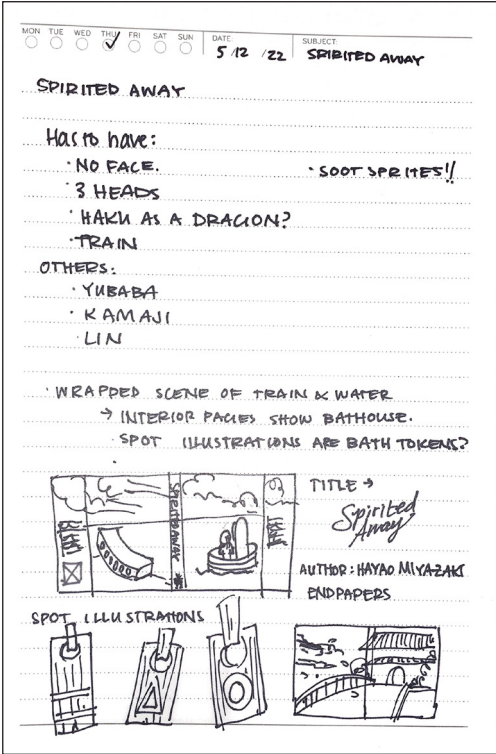 MON TUE WED THU FRI SAT SUN DATE: 5/12/22 SUBJECT: SPIRITED AWAY
SPIRITED AWAY
Has to have:
· NO FACE. · SOOT SPRITES!!
· 3 HEADS
· HAKU AS A DRAGON?
· TRAIN
OTHERS:
· YUBABA
· KAMAJI
· LIN
· WRAPPED SCENE OF TRAIN & WATER
→ INTERIOR PAGES SHOW BATHOUSE.
· SPOT ILLUSTRATIONS ARE BATH TOKENS?
SPIRITED AWAY
TITLE →
Spirited
Away
AUTHOR: HAYAO MIYAZAKI
ENDPAPERS
SPOT ILLUSTRATIONS